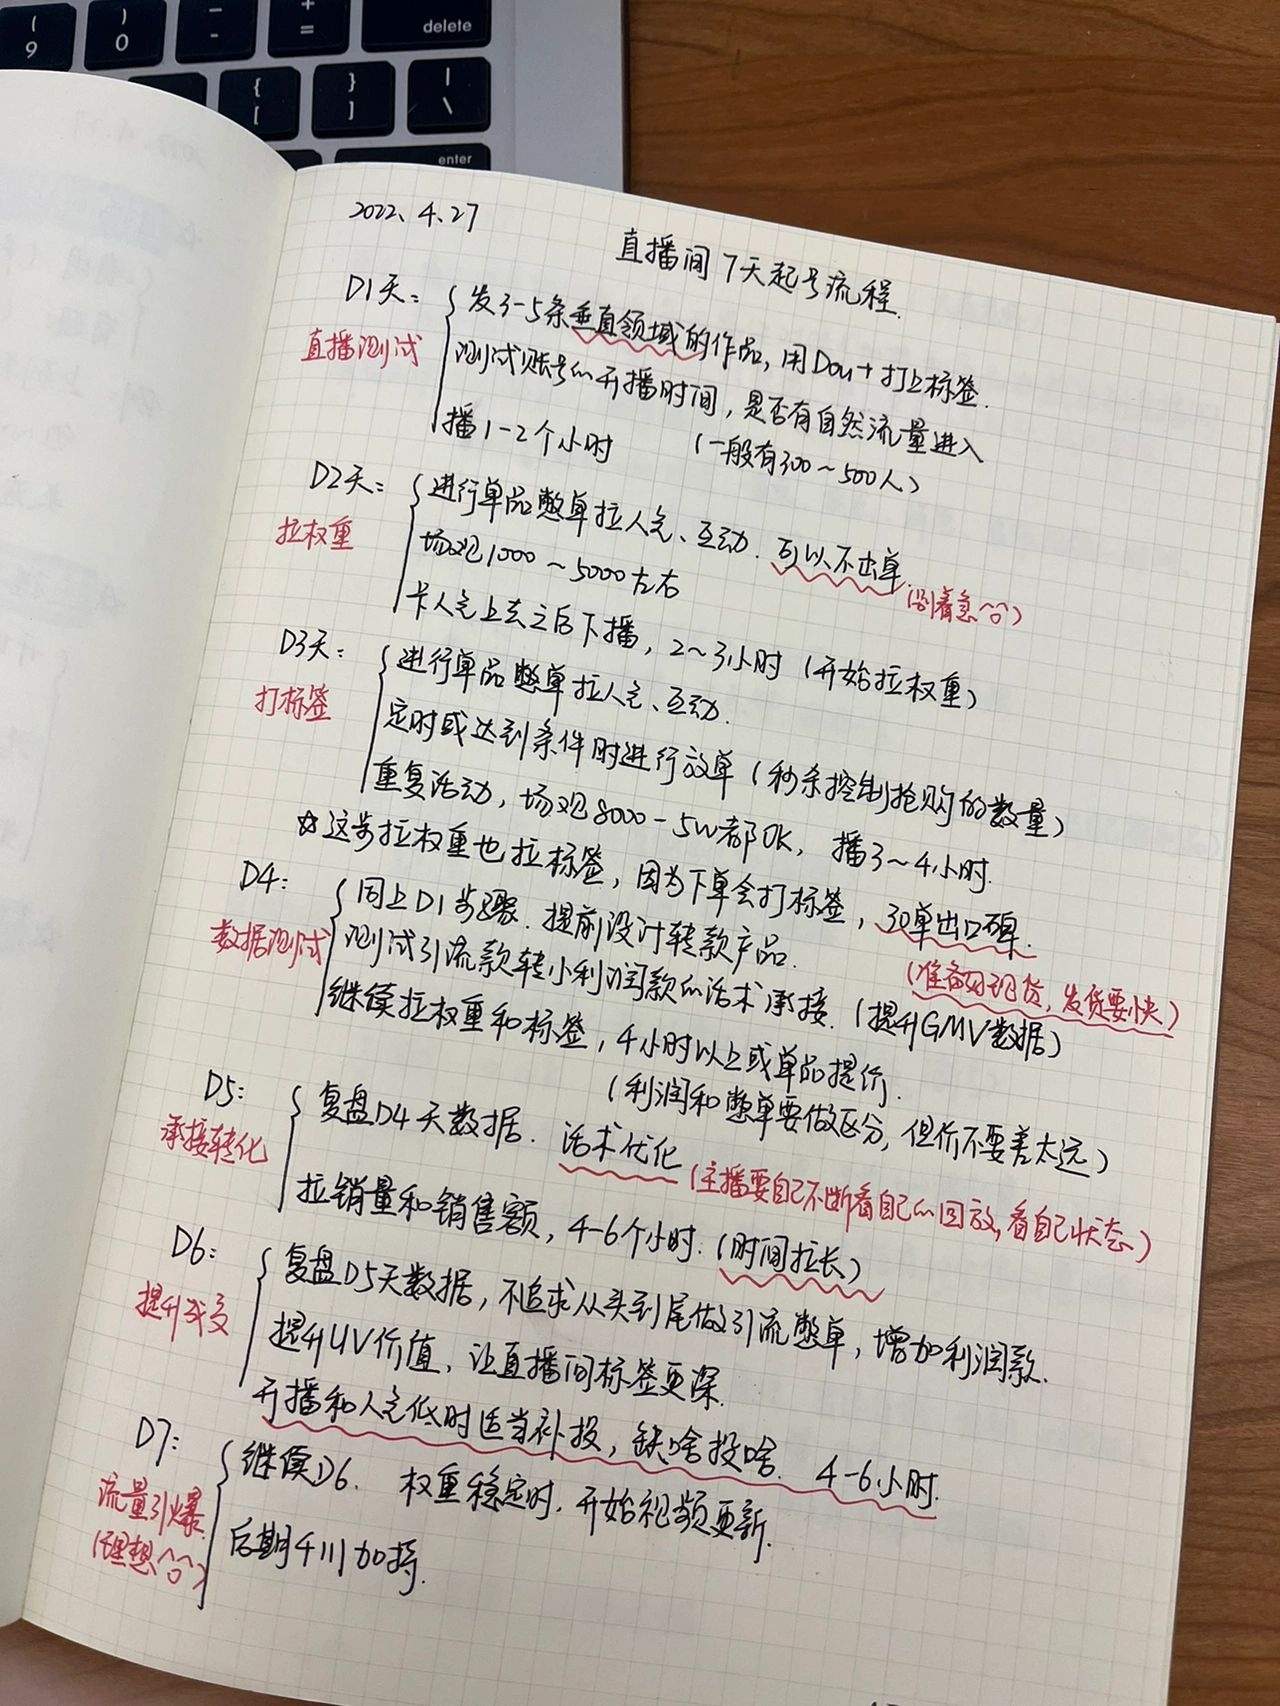 delete
enter
2022.4.27
直播间7天起号流程.
D1天:
直播测试
发3-5条垂直领域的作品,用Dou+打上标签.
测试账号的开播时间,是否有自然流量进入
播1-2个小时 (一般有300~500人)
D2天:
拉权重
进行单品憋单拉人气、互动. 可以不出单.
(别着急^口^)
场观1000~5000左右
卡人气上去之后下播,2~3小时(开始拉权重)
D3天:
打标签
进行单品憋单拉人气、互动.
定时或达到条件时进行放单(秒杀控制抢购的数量)
重复活动,场观8000-5W都OK, 播3~4小时.
☆这步拉权重也拉标签,因为下单会打标签,30单出口碑.
(准备好现货,发货要快)
D4:
数据测试
同上D1步骤. 提前设计转款产品.
测试引流款转小利润款的话术承接.(提升GMV数据)
继续拉权重和标签,4小时以上或单品提价.
(利润和憋单要做区分,但价不要差太远)
D5:
承接转化
复盘D4天数据. 话术优化(主播要自己不断看自己的回放,看自己状态)
拉销量和销售额,4-6个小时.(时间拉长)
D6:
提升成交
复盘D5天数据,不追求从头到尾做引流憋单,增加利润款.
提升UV价值,让直播间标签更深.
开播和人气低时适当补投,缺啥投啥. 4-6小时.
D7:
流量引爆
(理想^口^)
继续D6. 权重稳定时,开始视频更新.
后期千川加持.